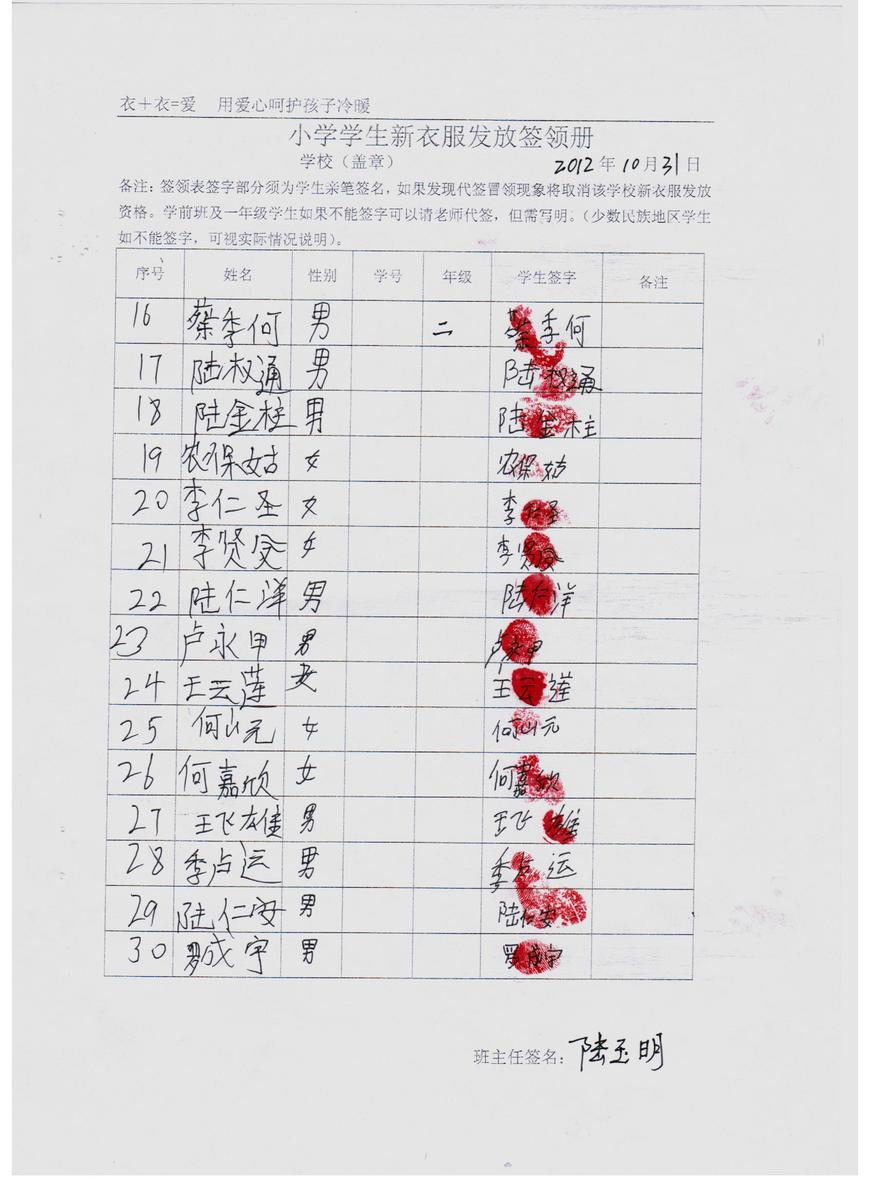 衣+衣=爱 用爱心呵护孩子冷暖
小学学生新衣服发放签领册
学校（盖章） 2012年10月31日
备注：签领表签字部分须为学生亲笔签名，如果发现代签冒领现象将取消该学校新衣服发放
资格。学前班及一年级学生如果不能签字可以请老师代签，但需写明。（少数民族地区学生
如不能签字，可视实际情况说明）。
序号 姓名 性别 学号 年级 学生签字 备注
16 蔡季何 男 二 蔡季何
17 陆权通 男 陆权通
18 陆金柱 男 陆金柱
19 农保姑 女 农保姑
20 李仁圣 女 李仁圣
21 李贤 女 李贤
22 陆仁洋 男 陆仁洋
23 卢永甲 男 卢永甲
24 王云莲 女 王云莲
25 何山元 女 何山元
26 何嘉欣 女 何嘉欣
27 王飞雄 男 王飞雄
28 季占运 男 季占运
29 陆仁安 男 陆仁安
30 罗成宇 男 罗成宇
班主任签名：陆玉明